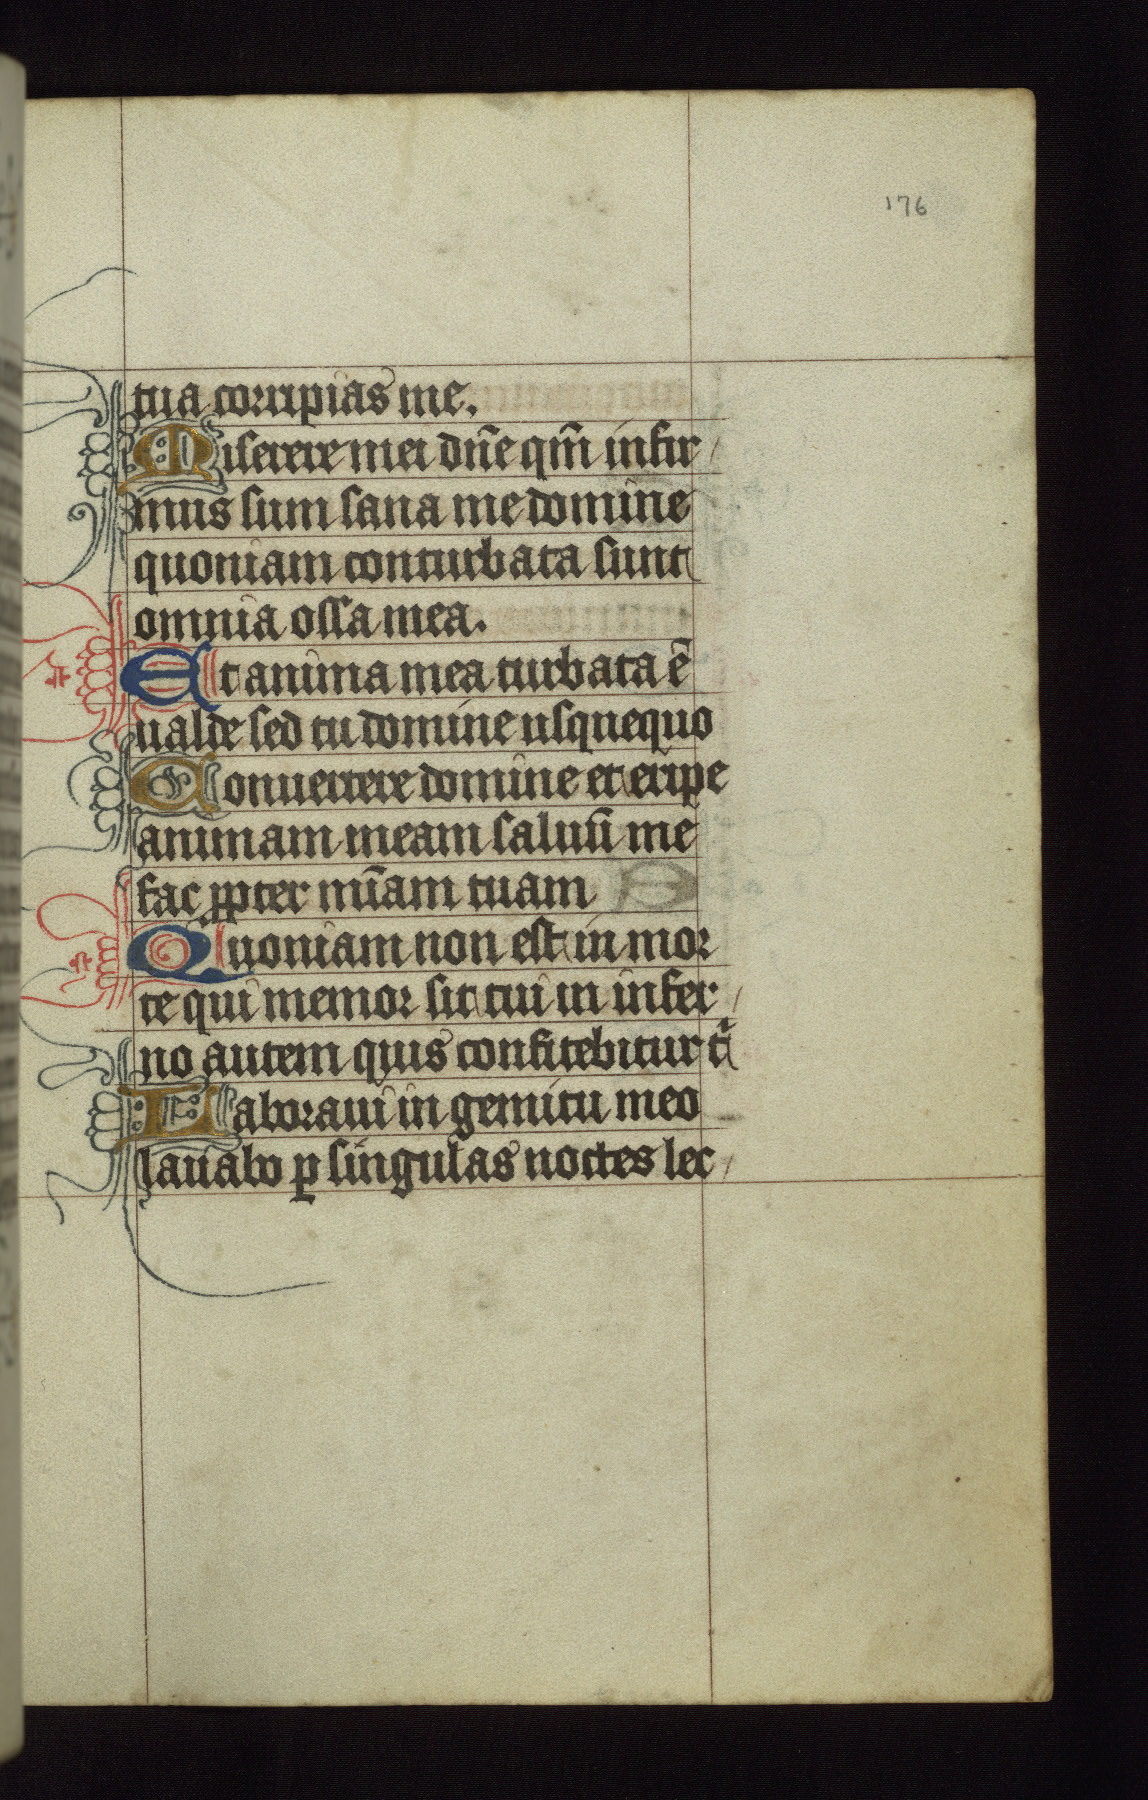 176
tua corripias me.
Miserere mei dn̄e qm̄ infir/
mus sum sana me domine
quoniam conturbata sunt
omnia ossa mea.
Et anima mea turbata ē
ualde sed tu domine usquequo
Conuertere domine et eripe
animam meam saluū me
fac ꝓpter mīam tuam
Quoniam non est in mor
te qui memor sit tui in infer/
no autem quis confitebitur t
Laboraui in gemitu meo
lauabo ꝑ singulas noctes lec/